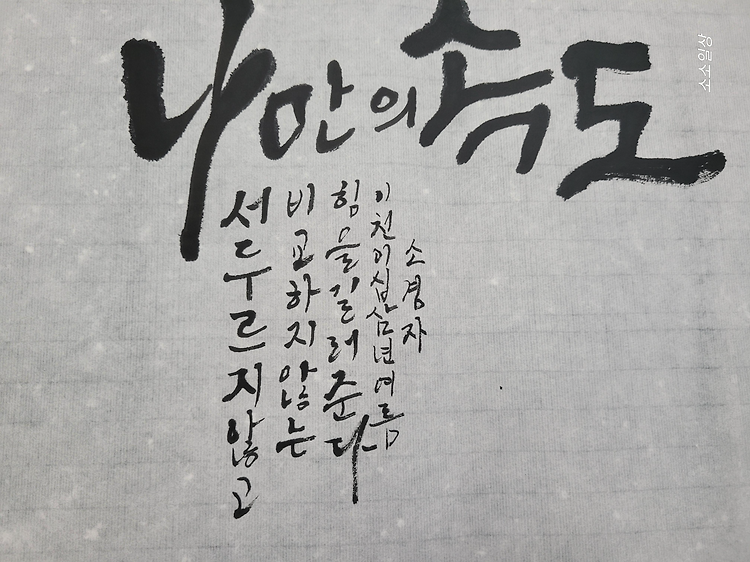 나만의 속도
서두르지 않고
비교하지 않는
힘을 길러준다
이천이십삼년 여름
소경자